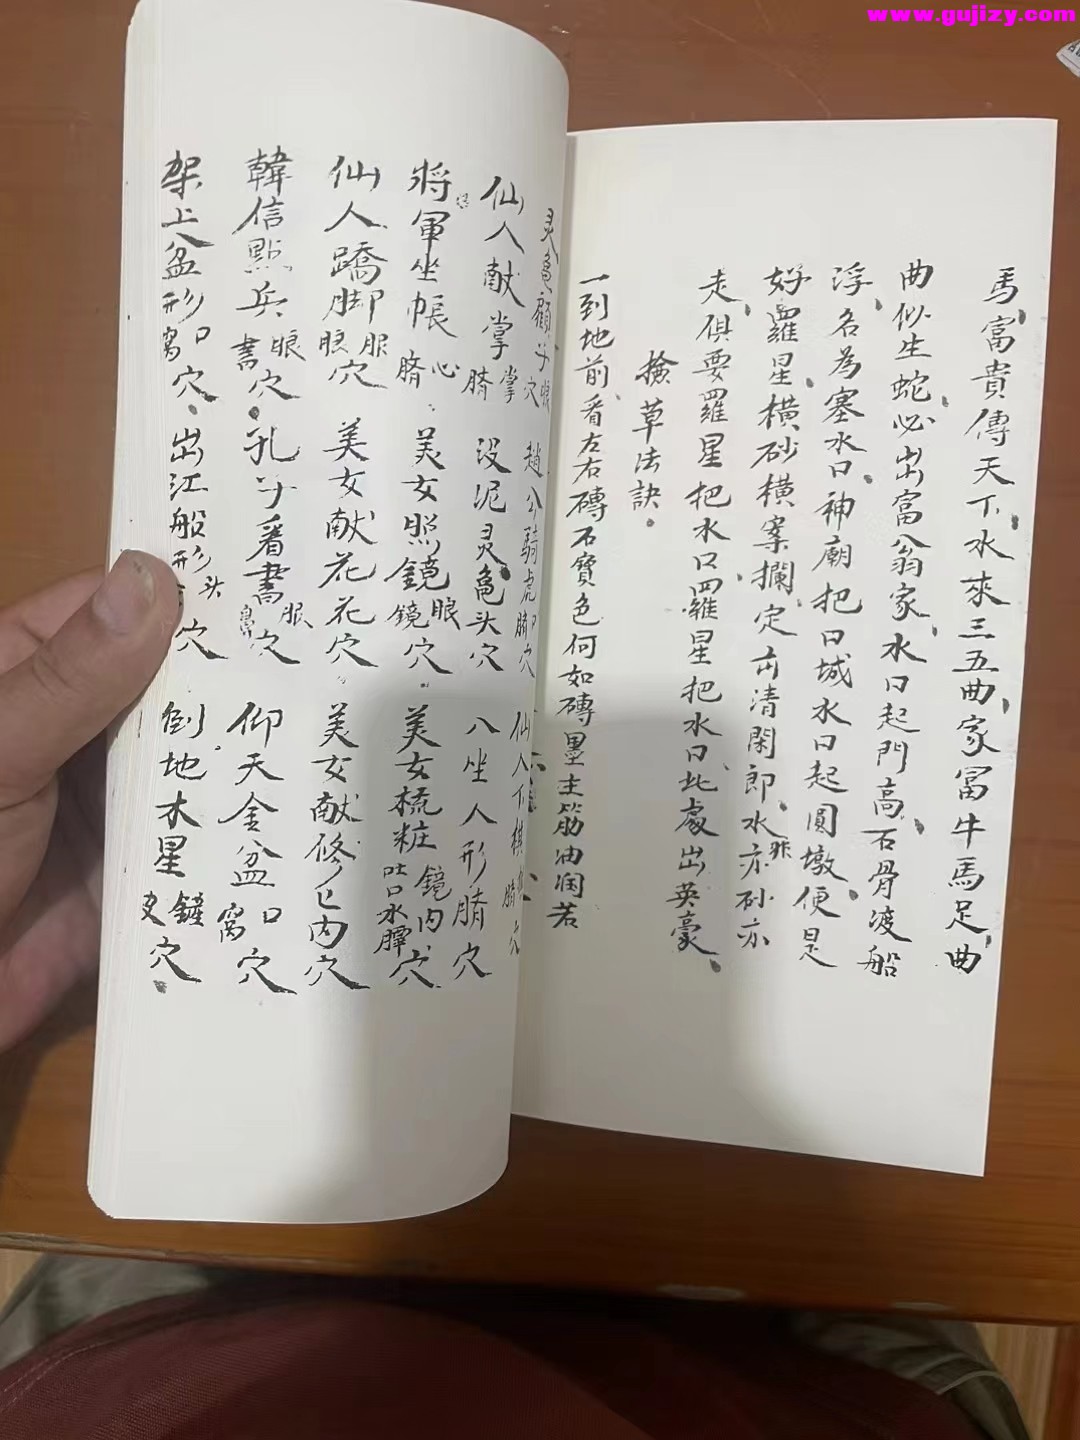 www.gujizy.com
馬富貴傳天下水來三五曲家富牛馬足曲
曲似生蛇必出富翁家水口起門高石骨渡船
浮名為塞水口神廟把口城水口起圓墩便是
好羅星橫砂橫案攔定 清閑郎水亦砂亦
走俱要羅星把水口羅星把水口此處出英豪
撿草法訣
一到地前看左右磚石寶色何如磚墨主筋油润若
灵龜顧子眼穴 趙公騎虎脚穴 仙人下棋 臍穴
仙人献掌掌臍 没泥灵龜头穴 八坐人形臍穴
將軍坐帳心臍 美女照鏡眼鏡穴 美女梳粧鏡内吐口水 穴
仙人蹻脚 穴 美女献花花穴 美女献修 内穴
韓信點兵眼書穴 孔子看書眼鼻穴 仰天金盆口窩穴
架上盆形口窩穴 出江船形头 穴 倒地木星 穴